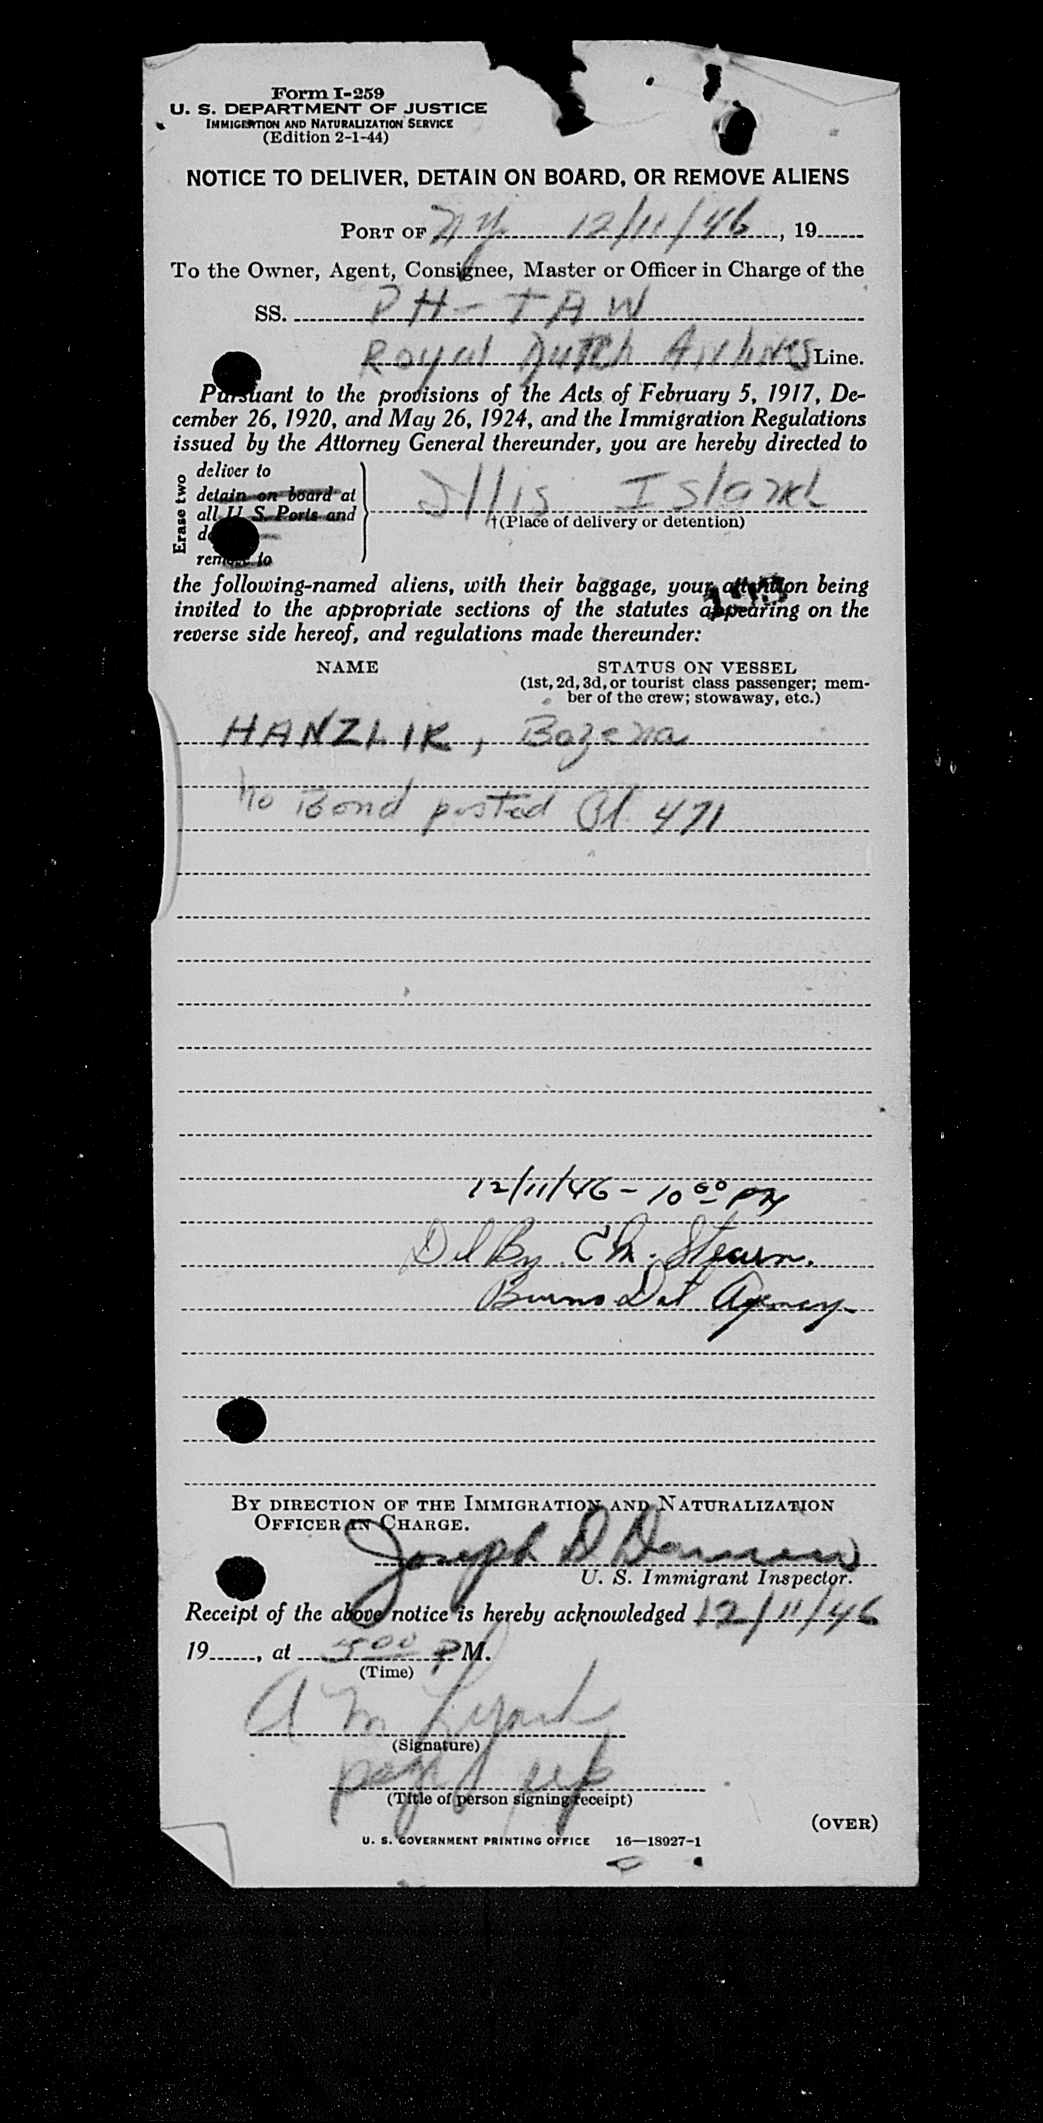 Form I-259
U. S. DEPARTMENT OF JUSTICE
IMMIGRATION AND NATURALIZATION SERVICE
(Edition 2-1-44)
NOTICE TO DELIVER, DETAIN ON BOARD, OR REMOVE ALIENS
PORT OF NY 12/11/46, 19
To the Owner, Agent, Consignee, Master or Officer in Charge of the
SS. PH-TAW
Royal Dutch Airlines Line.
Pursuant to the provisions of the Acts of February 5, 1917, De-
cember 26, 1920, and May 26, 1924, and the Immigration Regulations
issued by the Attorney General thereunder, you are hereby directed to
Erase two
deliver to
detain on board at
all U. S. Ports and
remove to
Ellis Island
†(Place of delivery or detention)
the following-named aliens, with their baggage, your attention being
invited to the appropriate sections of the statutes appearing on the
reverse side hereof, and regulations made thereunder:
NAME STATUS ON VESSEL
(1st, 2d, 3d, or tourist class passenger; mem-
ber of the crew; stowaway, etc.)
HANZLIK, Bozena
no Bond posted 471
12/11/46 - 10 00 PM
Del By. C M. Stearn.
Burns Det Agency
BY DIRECTION OF THE IMMIGRATION AND NATURALIZATION
OFFICER IN CHARGE.
Joseph D
U. S. Immigrant Inspector.
Receipt of the above notice is hereby acknowledged 12/11/46
19, at 5 00 P M.
(Time)
A M Lynch
(Signature)
(Title of person signing receipt)
(OVER)
U. S. GOVERNMENT PRINTING OFFICE 16—18927-1